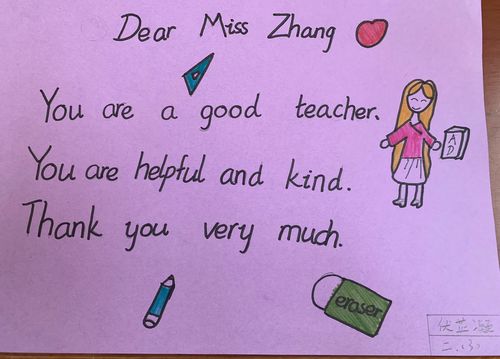 Dear Miss Zhang
You are a good teacher.
You are helpful and kind.
Thank you very much.
A
D
eraser
二.(3)